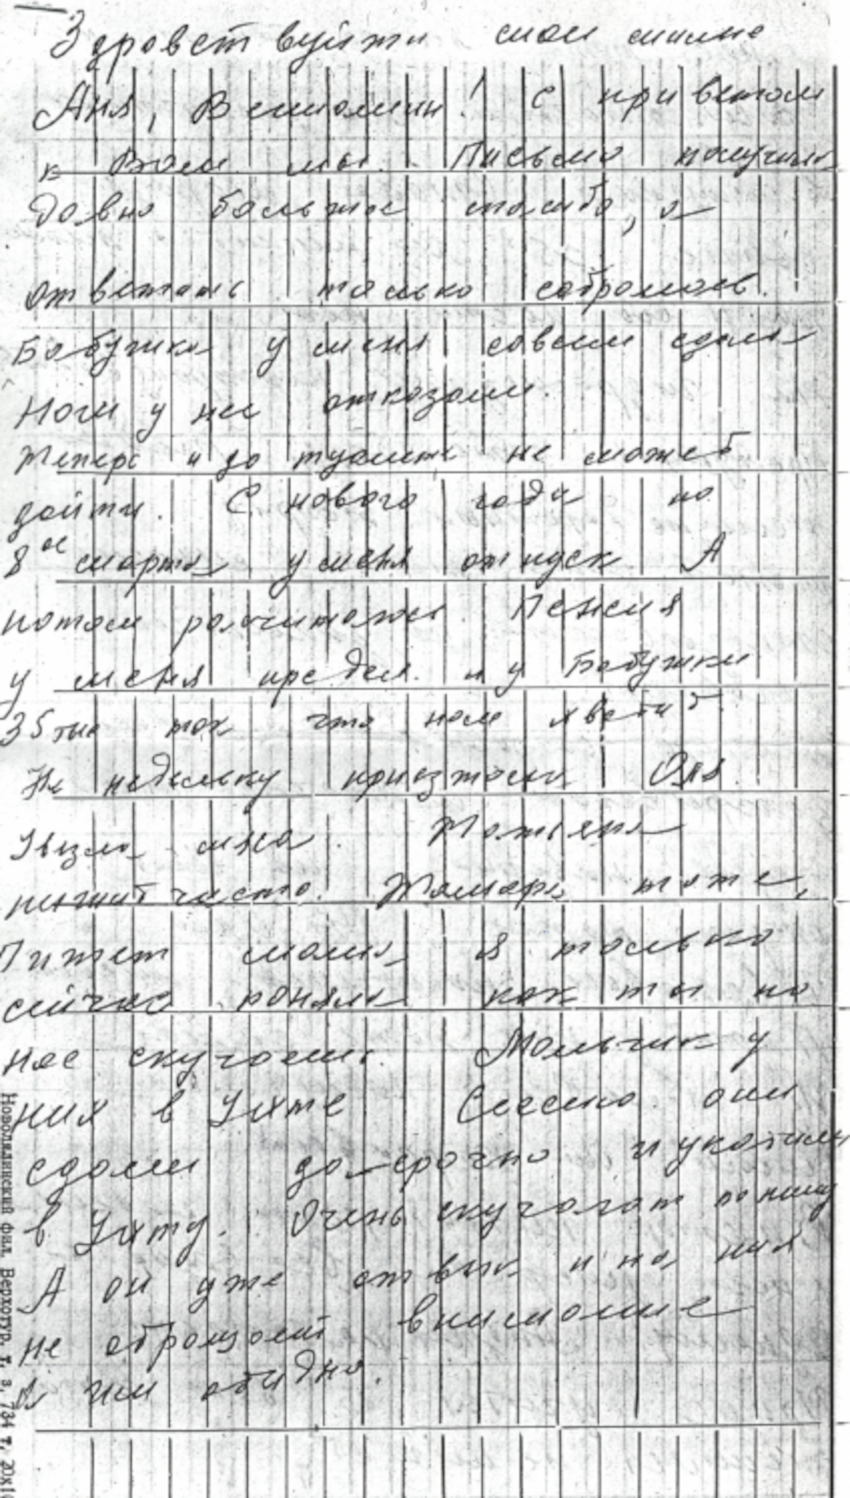 Здравствуйти мои милые
Аня, Вениомин! С приветом
к Вам мы. Письмо получили
давно большое спасибо, а
ответать только собролась.
Бабушка у меня совсем сдала
Ноги у нее отказали.
Теперь и до туалета не может
дойти. С нового года по
8ое марта у меня отпуск А
потом росчитаюсь. Пенсия
у меня предел. и у Бабушки
35 так что нам хватит
На недельку приезжала Оля.
Увезла мяса. Татьяна
пишит часто. Тамара тоже,
Пишет мама я только
сейчас поняла как ты по
нас скучаеш. Мальчик у
них в Ухте Сессию они
сдали до_срочно и укатили
в Ухту. Очень скучают по нему
А он уже отвык и на них
не обращает внимание
А им обидно.
Новолялинский фил. Верхотур. т. з. 734 т.